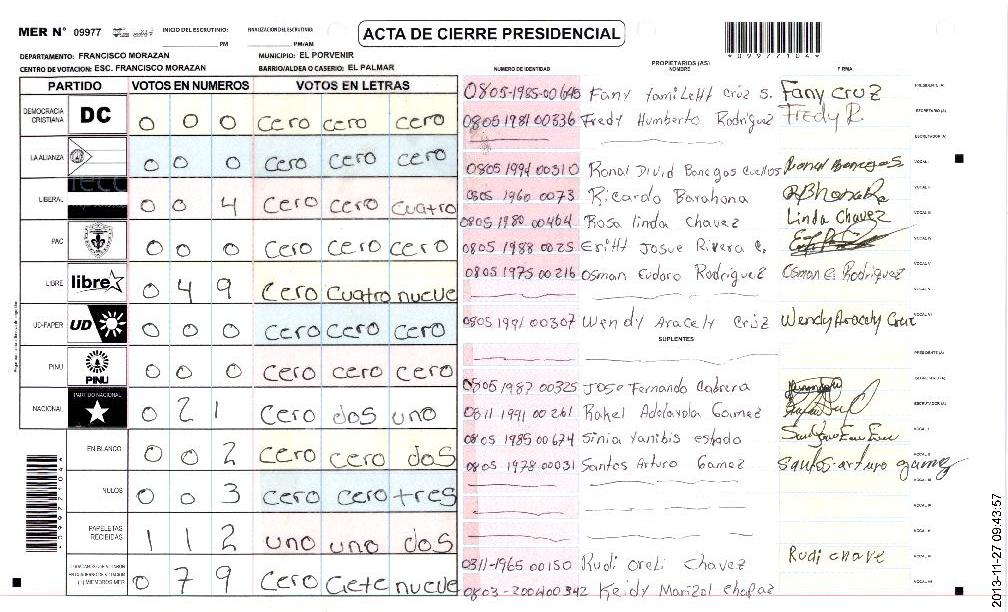 MER N° 09977 INICIO DEL ESCRUTINIO: PM FINALIZACION DEL ESCRUTINIO: PM/AM
ACTA DE CIERRE PRESIDENCIAL
*09977104*
DEPARTAMENTO: FRANCISCO MORAZAN MUNICIPIO: EL PORVENIR
CENTRO DE VOTACION: ESC. FRANCISCO MORAZAN BARRIO/ALDEA O CASERIO: EL PALMAR
PARTIDO VOTOS EN NUMEROS VOTOS EN LETRAS
DEMOCRACIA CRISTIANA DC 0 0 0 cero cero cero
LA ALIANZA 0 0 0 cero cero cero
LIBERAL 0 0 4 cero cero cuatro
PAC 0 0 0 cero cero cero
LIBRE libre 0 4 9 cero cuatro nueve
UD-FAPER UD 0 0 0 cero cero cero
PINU PINU 0 0 0 cero cero cero
NACIONAL PARTIDO NACIONAL 0 2 1 cero dos uno
EN BLANCO 0 0 2 cero cero dos
NULOS 0 0 3 cero cero tres
PAPELETAS RECIBIDAS 1 1 2 uno uno dos
(+) MIEMBROS MER 0 7 9 cero ciete nueve
NUMERO DE IDENTIDAD PROPIETARIOS (AS) NOMBRE FIRMA
0805-1985-00645 Fany Yamilett cruz s. Fany cruz PRESIDENTE (A)
0805 1981 00336 Fredy Humberto Rodriguez Fredy R. SECRETARIO (A)
ESCRUTADOR (A)
0805 1994 00310 Ronal David Banegas VOCAL I
0805 1960 0073 Ricardo Barahona VOCAL II
0805 1980 00464 Rosa linda chavez Linda Chavez VOCAL III
0805 1988 0025 Josue Rivera VOCAL IV
0805 1975 00216 Osman Eudoro Rodriguez Osman E. Rodriguez VOCAL V
0805 1991 00307 Wendy Aracely Crúz Wendy Aracely Cruz
SUPLENTES
PRESIDENTE (A)
0805 1987 00325 Jose Fernando Cabrera
0811 1991 00261 Gamez ESCRUTADOR (A)
0805 1985 00674 Sinia Yanibis estrado
0805 1978 00031 Santos Arturo Gamez santos-arturo gamez
0311-1965 00150 Rudi Oreli Chavez Rudi chave
0803-200400342 Keidy Marizol
2013-11-27 09:43:57